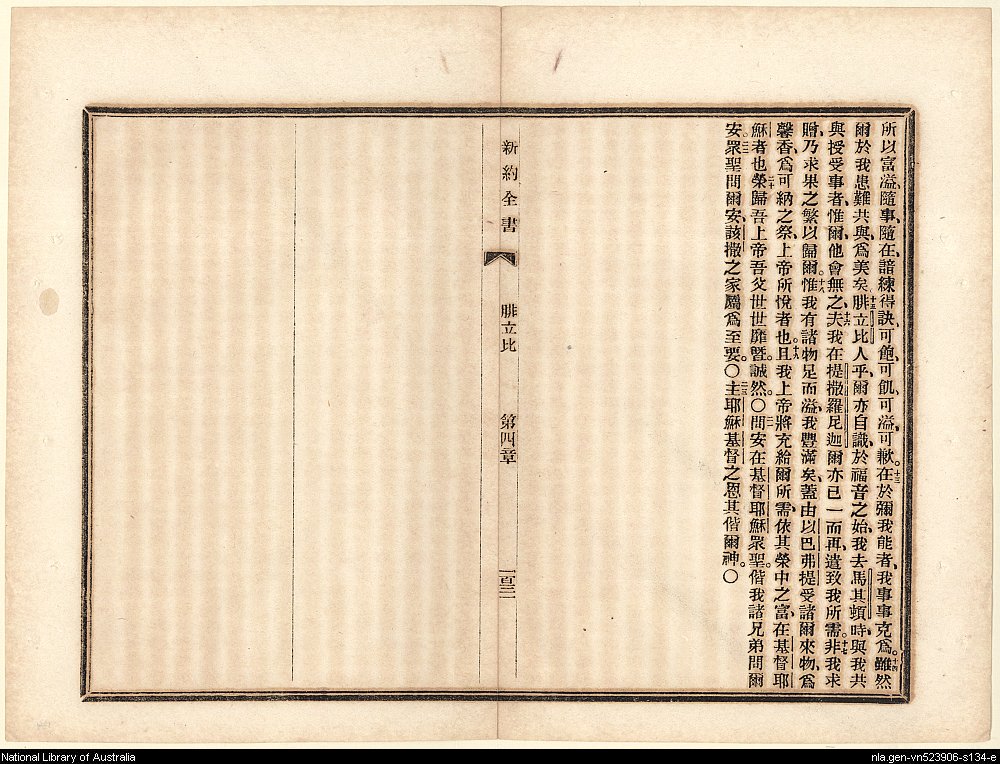 所以富溢、隨事、隨在、諳練得訣、可飽、可飢、可溢、可歉。十三在於彌我能者、我事事克爲。十四雖然
爾於我患難共與、爲美矣。十五腓立比人乎、爾亦自識、於福音之始、我去馬其頓時、與我共
與授受事者、惟爾、他會無之、十六夫我在提撒羅尼迦、爾亦已一而再、遣致我所需。十七非我求
贈、乃求果之繁以歸爾。十八惟我有諸物足而溢、我豐滿矣、蓋由以巴弗提受諸爾來物、爲
馨香、爲可納之祭、上帝所悅者也。十九且我上帝將充給爾所需、依其榮中之富、在基督耶
穌者也。二十榮歸吾上帝吾父世世靡曁。誠然。○二一問安在基督耶穌眾聖。偕我諸兄弟問爾
安。二二眾聖問爾安、該撒之家屬爲至要。○二三主耶穌基督之恩其偕爾神。○
新約全書
腓立比
第四章
一百三二
National Library of Australia
nla.gen-vn523906-s134-e